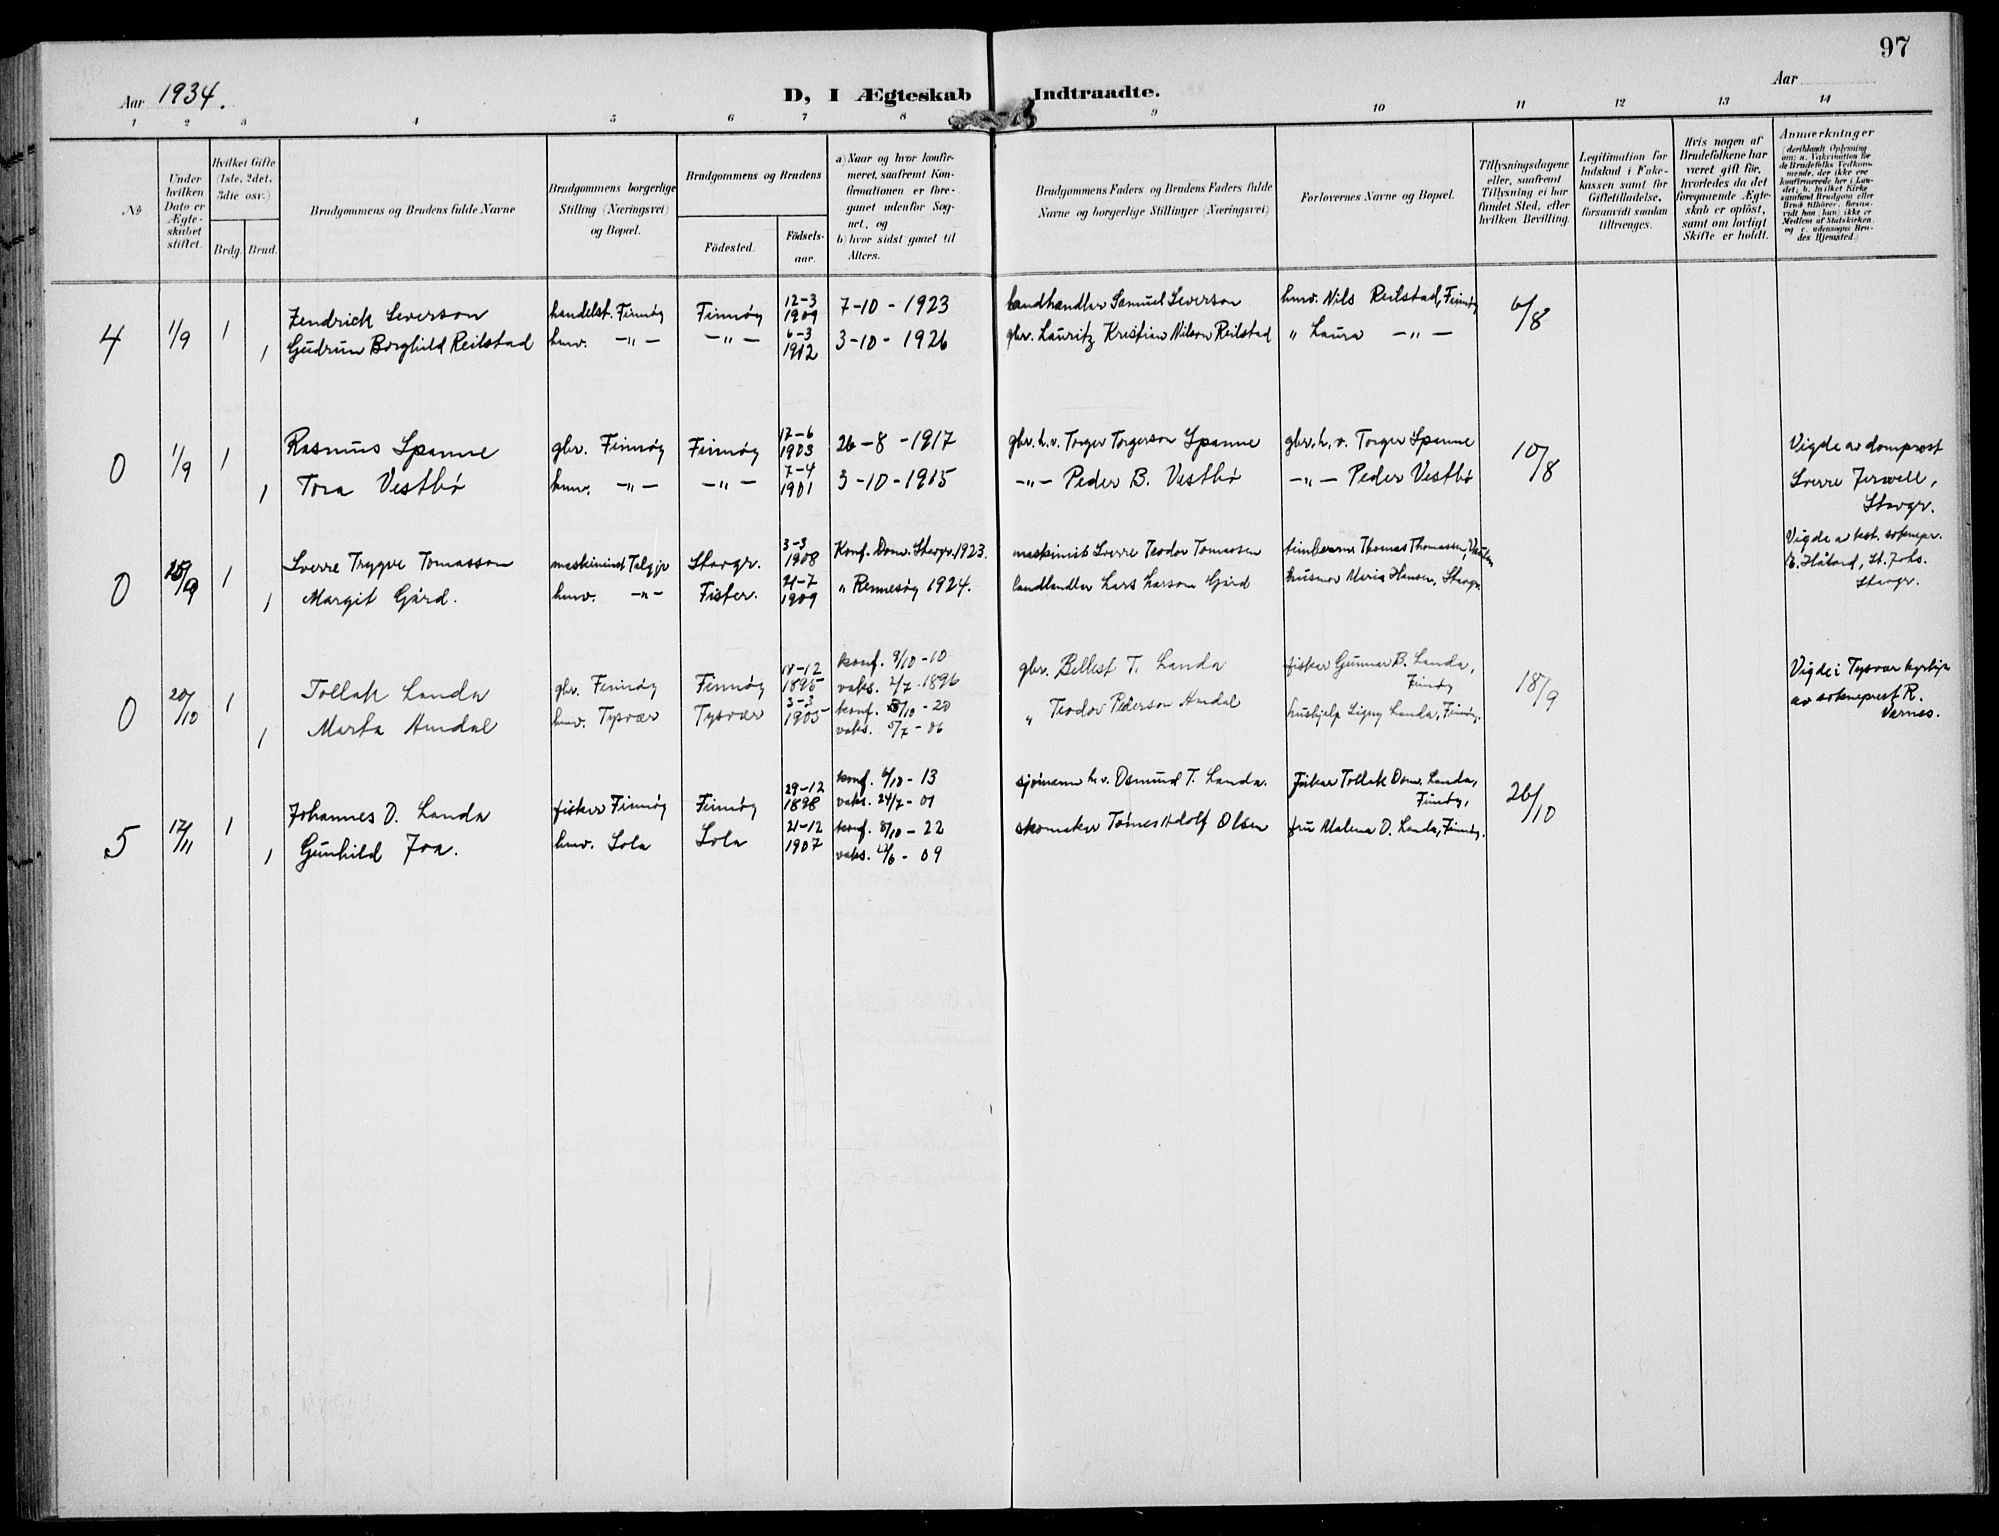 97
Aar 1934.
D, I Ægteskab Indtraadte.
Aar
1 2 3 4 5 6 7 8 9 10 11 12 13 14
No
Under hvilken Dato er Ægteskabet stiftet.
Hvilket Gifte (1ste, 2det, 3die osv.)
Brdg. Brud.
Brudgommens og Brudens fulde Navne
Brudgommens borgerlige Stilling (Næringsvei) og Bopæl.
Brudgommens og Brudens
Födested. Födselsaar.
a) Naar og hvor konfirmeret, saafremt Konfirmationen er foregaaet udenfor Sognet, og
b) hvor sidst gaael til Alters.
Brudgommens Faders og Brudens Faders fulde Navne og borgerlige Stillinger (Næringsvei)
Forlovernes Navne og Bopæl.
Tillysningsdagene eller, saafremt Tillysning ei har fundet Sted, efter hvilken Bevilling.
Legitimation for Indskud i Enkekassen samt for Giftetilladelse, forsaavidt saadan tiltrænges.
Hvis nogen af Brudefolkene har været gift før, hvorledes da det foregaaende Ægteskab er oplöst, samt om lovligt Skifte er holdt.
Anmerkninger (deriblandt Oplysning om: a. Vakcination for de Brudefolks Vedkommende, der ikke ere konfirmerede her i Landet; b. hvilket Kirkesamfund Brudgom eller Brud tilhörer, forsaavidt han (hun) ikke er Medlem af Statskirken, og c. udensogns Brudes Hjemsted.)
4 1/9 1 Zendrick Severson handelst. Finnøy Finnøy 12-3 1909 7-10-1923 landhandler Samuel Severson hmv. Nils Reilstad, Finnøy 6/8
1 Gudrun Borghild Reilstad hmv. -"- -"- 6-3 1912 3-10-1926 gbr. Lauritz Kristian Nilson Reilstad " Laura -"-
0 1/9 1 Rasmus Spanne gbr. Finnøy Finnøy 17-6 1903 26-8-1917 gbr. h.v. Torger Torgerson Spanne gbr. h.v. Torger Spanne 10/8 Vigde av domprost
1 Tora Vestbø hmv. -"- -"- 7-4 1901 3-10-1915 -"- Peder B. Vestbø -"- Peder Vestbø Sverre Jerwell, Stavgr.
0 /9 1 Sverre Trygve Tomasson maskinist Talgje Stavgr. 3-3 1908 Konf. Dom. Stavgr. 1923. maskinist Sverre Teodor Tomassen Thomas Thomassen, Vigde av soknepr.
1 Margit Gård. hmv. -"- Fister. 21-7 1909 " Rennesøy 1924. landhandler Lars Larson Gård husmor Maria Hansen, Stavgr. St. Johs. Stavgr.
0 20/10 1 Tollak Landa gbr. Finnøy Finnøy 18-12 1895 konf. 9/10-10 vaks. 2/7-1896 gbr. Bellest T. Landa fisker Gunnar B. Landa, Finnøy 18/9 Vigde i Tysvær kyrkja
1 Marta Amdal hmv. Tysvær Tysvær 3-3 1905 konf. /10-20 vaks. 5/7-06 " Teodor Pederson Amdal hushjelp Signy Landa, Finnøy. av sokneprest R. Varnes.
5 17/11 1 Johannes O. Landa fisker Finnøy Finnøy 29-12 1898 konf. 6/10-13 vaks. 24/7-01 sjømann h.v. Osmund T. Landa. fisker Tollak Osm. Landa, Finnøy, 26/10
1 Gunhild Joa. hmv. Sola Sola 21-12 1907 konf. 8/10-22 vaks. /6-09 skomaker Tønnes Adolf Olsen fru Malena O. Landa, Finnøy.